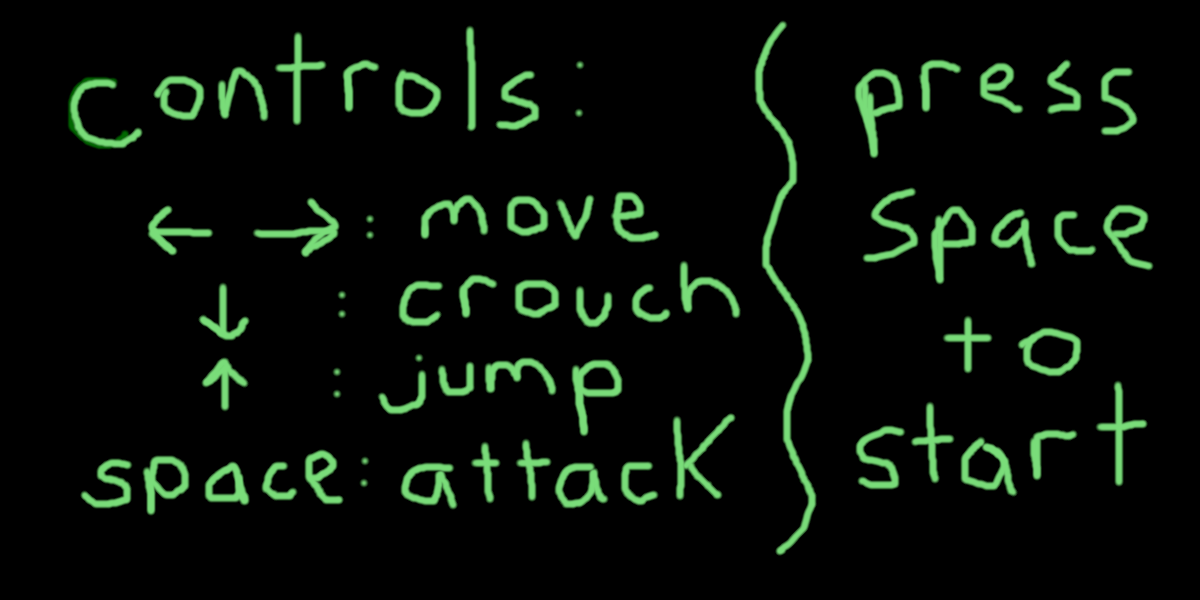 controls:
← → : move
↓ : crouch
↑ : jump
space: attack
press
space
to
start